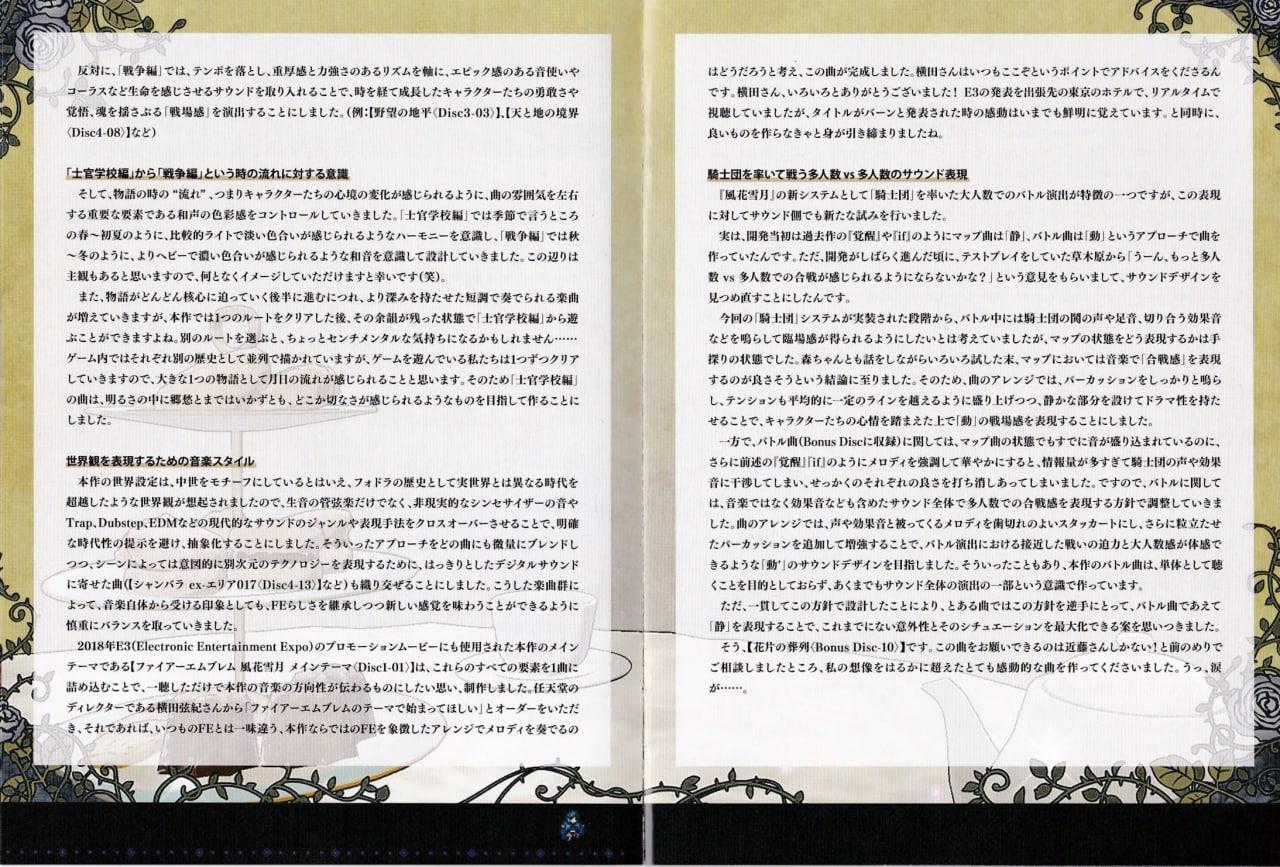 反対に、「戦争編」では、テンポを落とし、重厚感と力強さのあるリズムを軸に、エピック感のある音使いや
コーラスなど生命を感じさせるサウンドを取り入れることで、時を経て成長したキャラクターたちの勇敢さや
覚悟、魂を揺さぶる「戦場感」を演出することにしました。(例:【野望の地平〈Disc3-03〉】、【天と地の境界
〈Disc4-08〉】など)
「士官学校編」から「戦争編」という時の流れに対する意識
そして、物語の時の“流れ”、つまりキャラクターたちの心境の変化が感じられるように、曲の雰囲気を左右
する重要な要素である和声の色彩感をコントロールしていきました。「士官学校編」では季節で言うところ
の春～初夏のように、比較的ライトで淡い色合いが感じられるようなハーモニーを意識し、「戦争編」では秋
～冬のように、よりヘビーで濃い色合いが感じられるような和音を意識して設計していきました。この辺りは
主観もあると思いますので、何となくイメージしていただけますと幸いです(笑)。
また、物語がどんどん核心に迫っていく後半に進むにつれ、より深みを持たせた短調で奏でられる楽曲
が増えていきますが、本作では1つのルートをクリアした後、その余韻が残った状態で「士官学校編」から遊
ぶことができますよね。別のルートを選ぶと、ちょっとセンチメンタルな気持ちになるかもしれません……
ゲーム内ではそれぞれ別の歴史として並列で描かれていますが、ゲームを遊んでいる私たちは1つずつクリア
していきますので、大きな1つの物語として月日の流れが感じられることと思います。そのため「士官学校編」
の曲は、明るさの中に郷愁とまではいかずとも、どこか切なさが感じられるようなものを目指して作ることに
しました。
世界観を表現するための音楽スタイル
本作の世界設定は、中世をモチーフにしているとはいえ、フォドラの歴史として実世界とは異なる時代を
超越したような世界観が想起されましたので、生音の管弦楽だけでなく、非現実的なシンセサイザーの音や
Trap、Dubstep、EDMなどの現代的なサウンドのジャンルや表現手法をクロスオーバーさせることで、明確
な時代性の提示を避け、抽象化することにしました。そういったアプローチをどの曲にも微量にブレンドし
つつ、シーンによっては意図的に別次元のテクノロジーを表現するために、はっきりとしたデジタルサウンド
に寄せた曲(【シャンバラ ex-エリア017〈Disc4-13〉】など)も織り交ぜることにしました。こうした楽曲群に
よって、音楽自体から受ける印象としても、FEらしさを継承しつつ新しい感覚を味わうことができるように
慎重にバランスを取っていきました。
2018年E3(Electronic Entertainment Expo)のプロモーションムービーにも使用された本作のメイン
テーマである【ファイアーエムブレム 風花雪月 メインテーマ〈Disc1-01〉】は、これらのすべての要素を1曲に
詰め込むことで、一聴しただけで本作の音楽の方向性が伝わるものにしたい思い、制作しました。任天堂の
ディレクターである横田弦紀さんから「ファイアーエムブレムのテーマで始まってほしい」とオーダーをいただ
き、それであれば、いつものFEとは一味違う、本作ならではのFEを象徴したアレンジでメロディを奏でるの
はどうだろうと考え、この曲が完成しました。横田さんはいつもここぞというポイントでアドバイスをくださるん
です。横田さん、いろいろとありがとうございました！ E3の発表を出張先の東京のホテルで、リアルタイムで
視聴していましたが、タイトルがバーンと発表された時の感動はいまでも鮮明に覚えています。と同時に、
良いものを作らなきゃと身が引き締まりましたね。
騎士団を率いて戦う多人数 vs 多人数のサウンド表現
『風花雪月』の新システムとして「騎士団」を率いた大人数でのバトル演出が特徴の一つですが、この表現
に対してサウンド側でも新たな試みを行いました。
実は、開発当初は過去作の『覚醒』や『if』のようにマップ曲は「静」、バトル曲は「動」というアプローチで曲を
作っていたんです。ただ、開発がしばらく進んだ頃に、テストプレイをしていた草木原から「うーん、もっと多人
数 vs 多人数での合戦が感じられるようにならないかな？」という意見をもらいまして、サウンドデザインを
見つめ直すことにしたんです。
今回の「騎士団」システムが実装された段階から、バトル中には騎士団の鬨の声や足音、切り合う効果音
などを鳴らして臨場感が得られるようにしたいとは考えていましたが、マップの状態をどう表現するかは手
探りの状態でした。森ちゃんとも話をしながらいろいろ試した末、マップにおいては音楽で「合戦感」を表現
するのが良さそうという結論に至りました。そのため、曲のアレンジでは、パーカッションをしっかりと鳴ら
し、テンションも平均的に一定のラインを越えるように盛り上げつつ、静かな部分を設けてドラマ性を持た
せることで、キャラクターたちの心情を踏まえた上で「動」の戦場感を表現することにしました。
一方で、バトル曲(Bonus Discに収録)に関しては、マップ曲の状態でもすでに音が盛り込まれているのに、
さらに前述の『覚醒』『if』のようにメロディを強調して華やかにすると、情報量が多すぎて騎士団の声や効果
音に干渉してしまい、せっかくのそれぞれの良さを打ち消しあってしまいました。ですので、バトルに関して
は、音楽ではなく効果音なども含めたサウンド全体で多人数での合戦感を表現する方針で調整していきま
した。曲のアレンジでは、声や効果音と被ってくるメロディを歯切れのよいスタッカートにし、さらに粒立たせ
たパーカッションを追加して増強することで、バトル演出における接近した戦いの迫力と大人数感が体感で
きるような「動'」のサウンドデザインを目指しました。そういったこともあり、本作のバトル曲は、単体として聴
くことを目的としておらず、あくまでもサウンド全体の演出の一部という意識で作っています。
ただ、一貫してこの方針で設計したことにより、とある曲ではこの方針を逆手にとって、バトル曲であえて
「静」を表現することで、これまでにない意外性とそのシチュエーションを最大化できる案を思いつきました。
そう、【花片の葬列〈Bonus Disc-10〉】です。この曲をお願いできるのは近藤さんしかない！と前のめりで
ご相談しましたところ、私の想像をはるかに超えたとても感動的な曲を作ってくださいました。うっ、涙
が……。